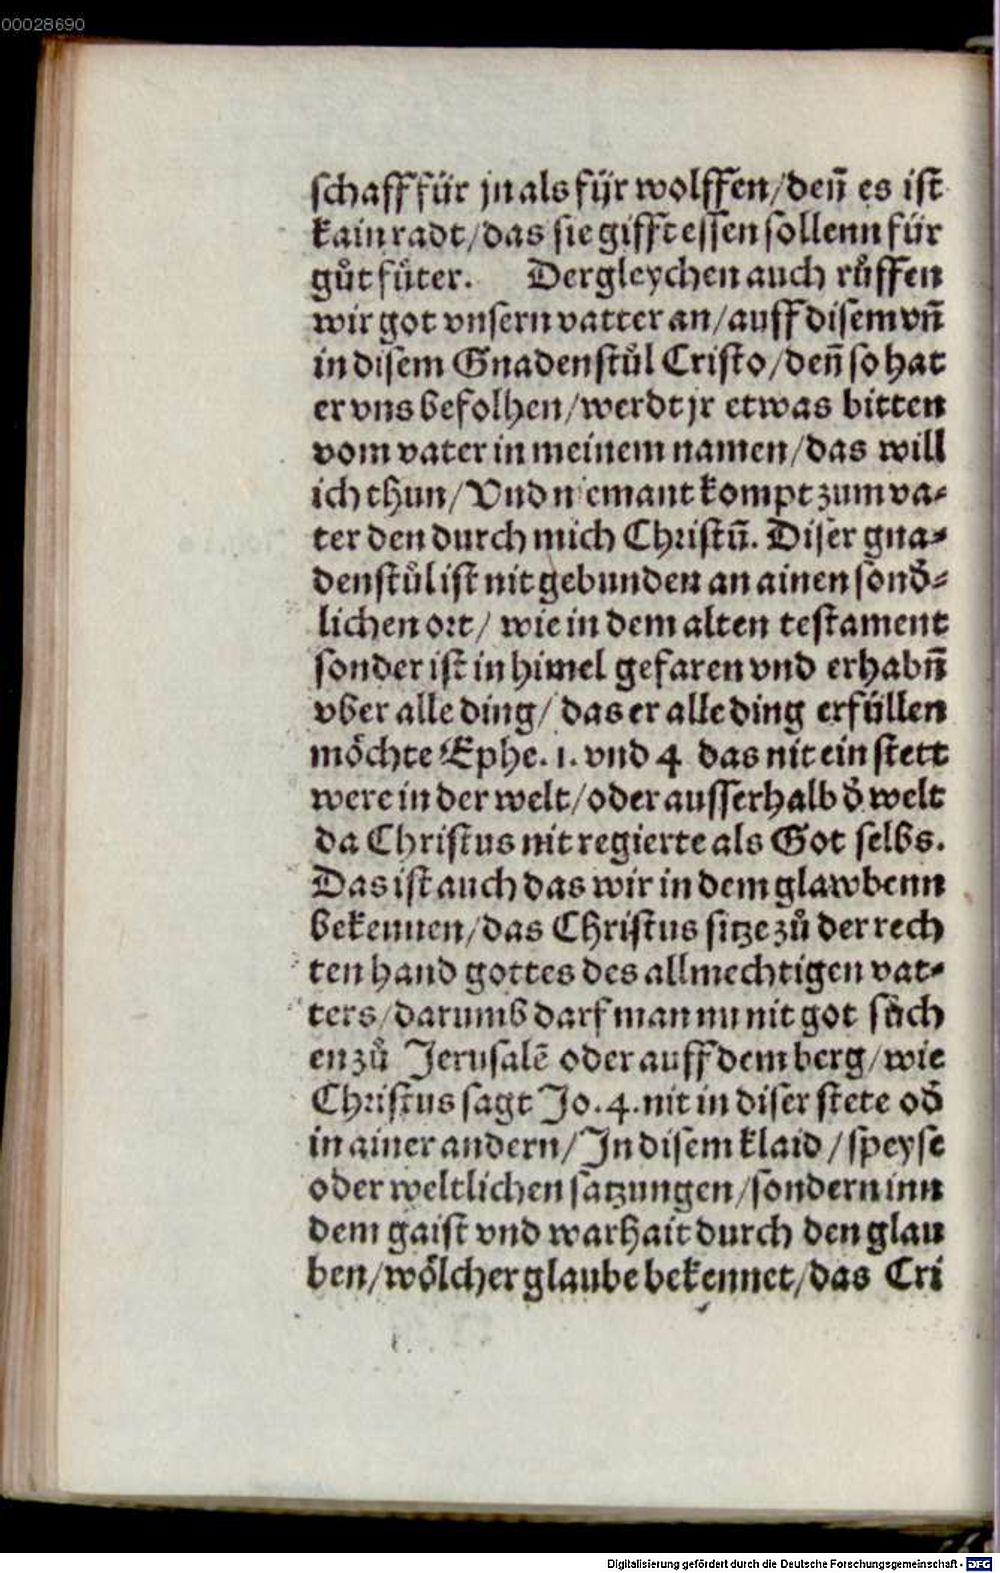 00028690
schaff für jn als für wolffen/deñ es ist
kain radt/das sie gifft essen sollenn für
gůt fůter. Dergleychen auch růffen
wir got vnsern vatter an/auff disem vñ
in disem Gnadenstůl Cristo/deñ so hat
er vns befolhen/werdt jr etwas bitten
vom vater in meinem namen/das will
ich thun/Vnd niemant kompt zum va-
ter den durch mich Christũ. Diser gna-
denstůl ist nit gebunden an ainen sond̾-
lichen ort/ wie in dem alten testament
sonder ist in himel gefaren vnd erhabñ
vber alle ding/ das er alle ding erfüllen
möchte Ephe. 1. vnd 4 das nit ein stett
were in der welt/oder ausserhalb d̾ welt
da Christus nit regierte als Got selbs.
Das ist auch das wir in dem glawbenn
bekennen/das Christus sitze zů der rech
ten hand gottes des allmechtigen vat-
ters/darumb darf man nu nit got sůch
en zů Jerusalẽ oder auff dem berg/wie
Christus sagt Jo. 4. nit in diser stete od̾
in ainer andern/In disem klaid/speyse
oder weltlichen satzungen/sondern inn
dem gaist vnd warhait durch den glau
ben/wölcher glaube bekennet/das Cri
Digitalisierung gefördert durch die Deutsche Forschungsgemeinschaft - DFG